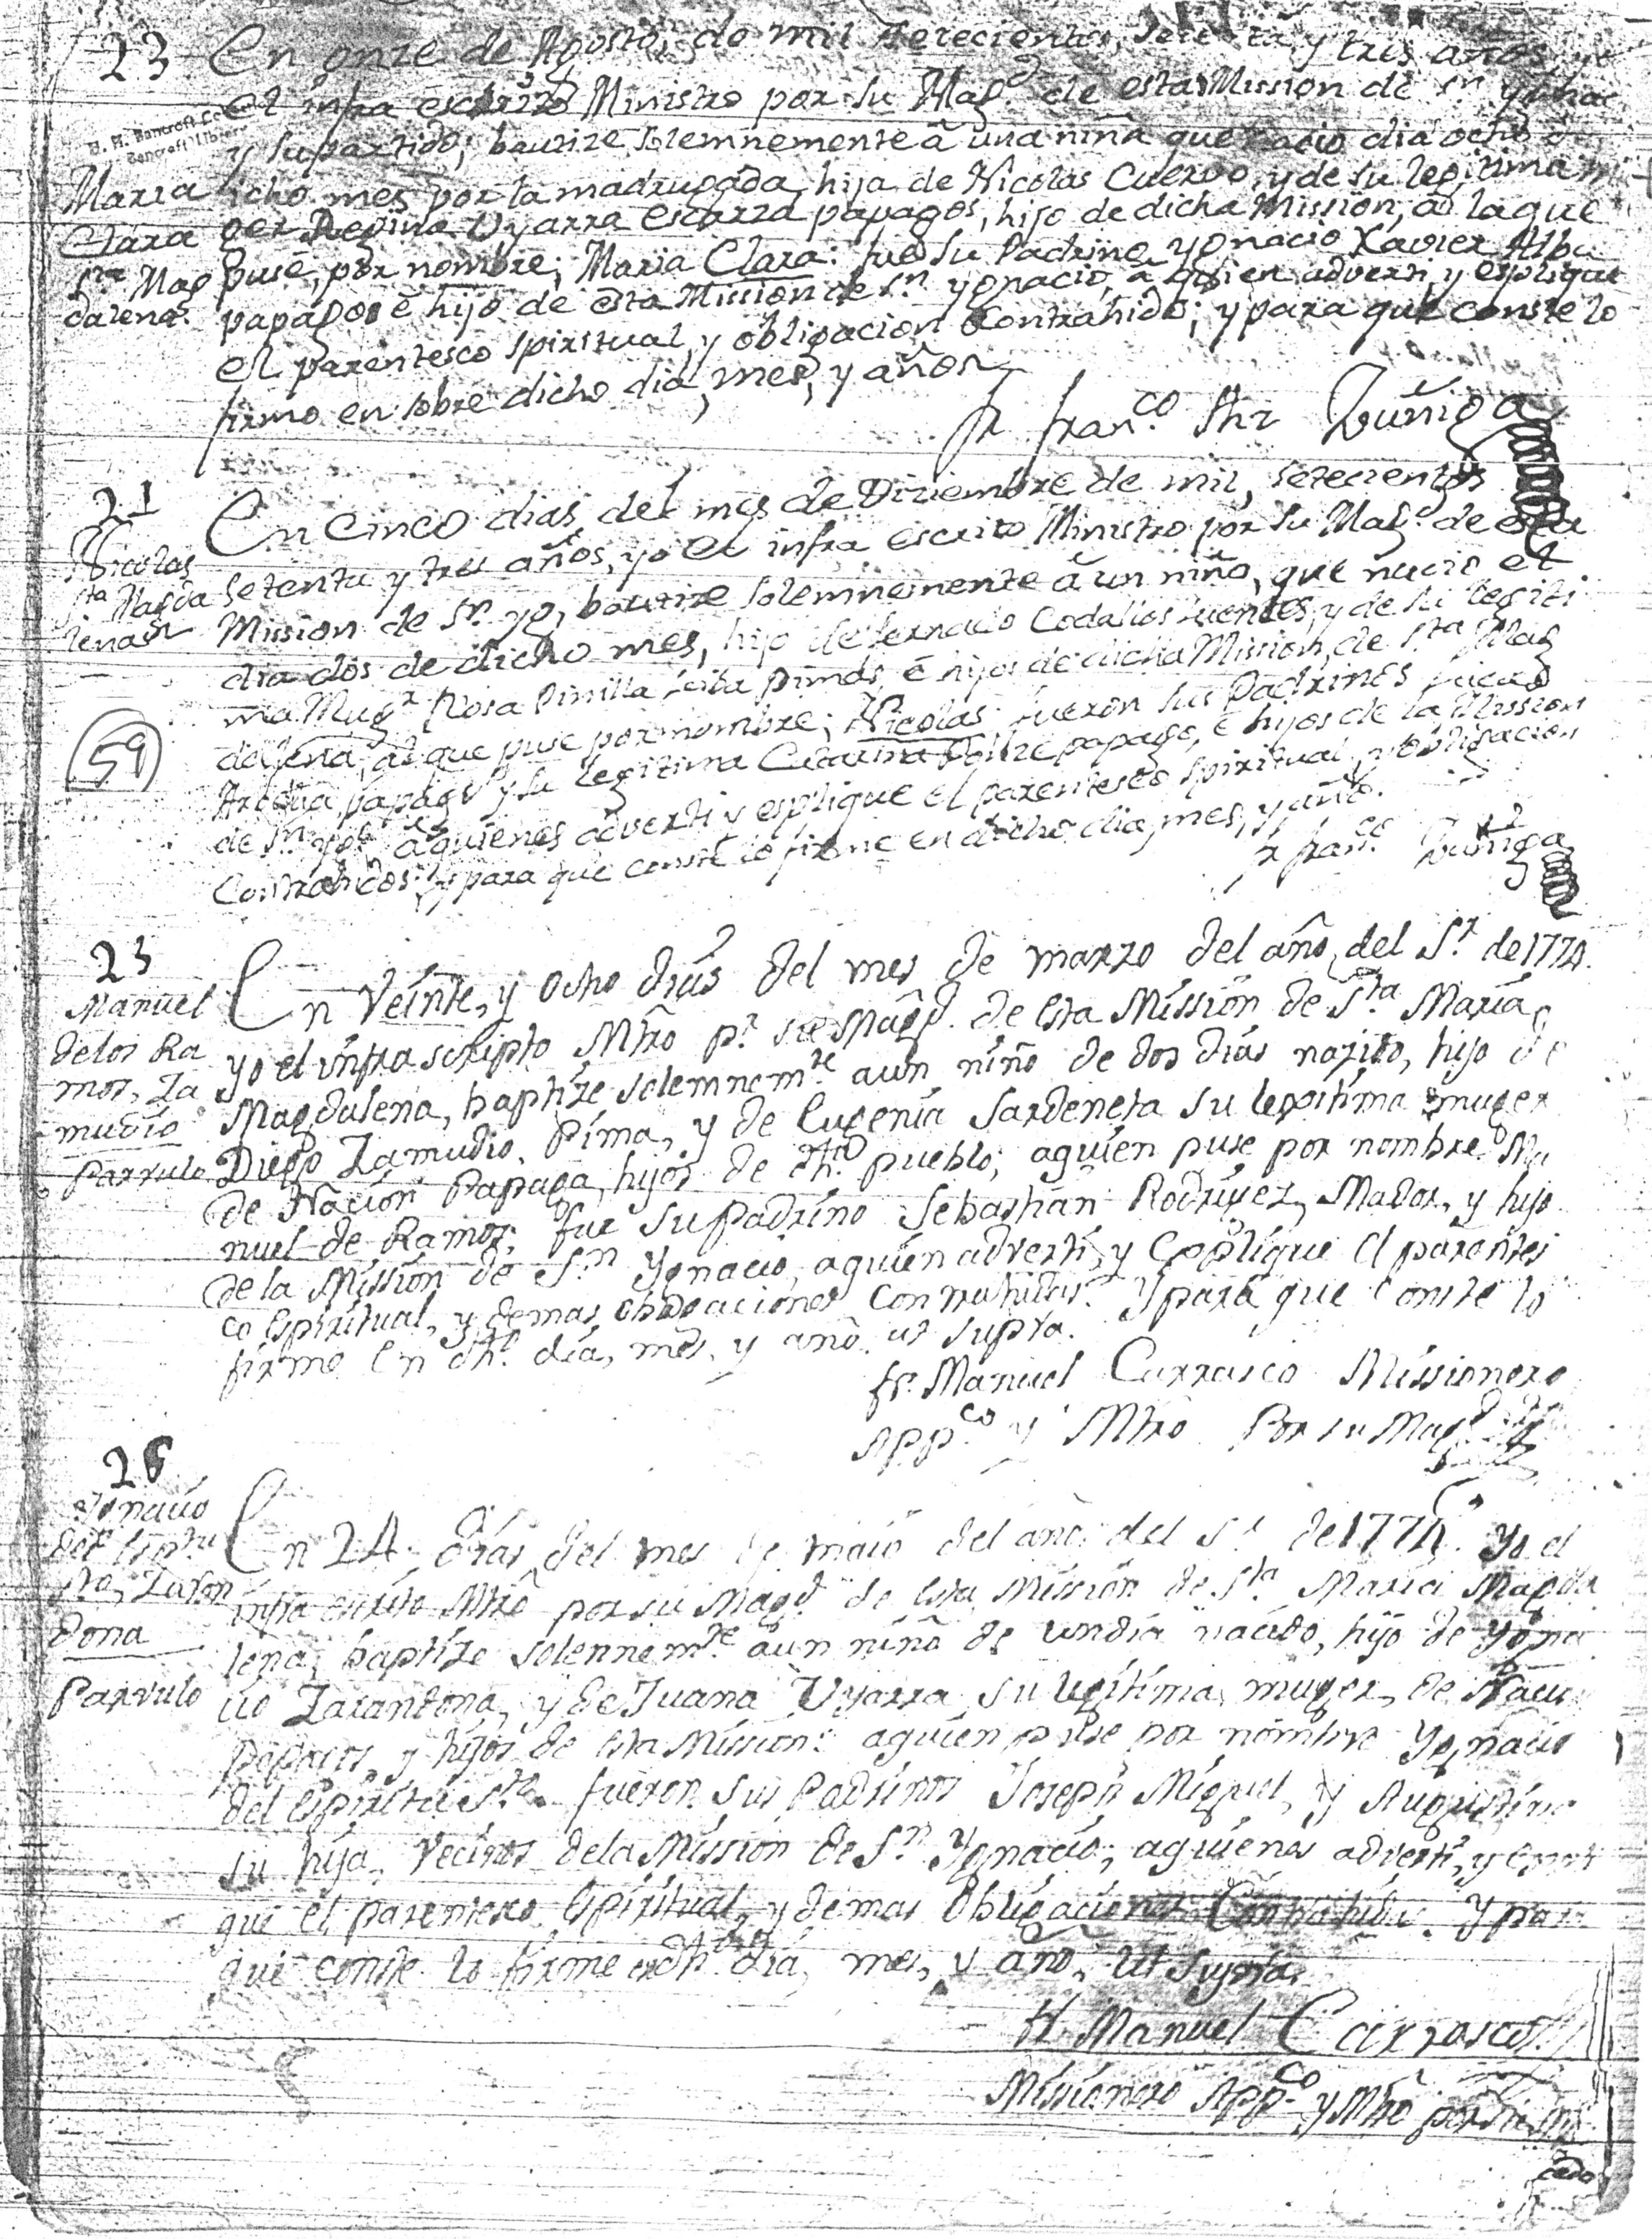 23
En onze de Agosto, de mil setecientos, setenta y tres años, yo
el infra escrito Ministro por su Magd. de esta Mission de Sn.
H. H. Bancroft
Bancroft Library
y su partido; bautize solemnemente â una niña que nacio dia ocho
Maria
dicho mes por la madrugada, hija de Nicolas Cuervo, y de su legitima
Clara
ger Regina Vyarra papagos, hijo de dicha Mission, a la que
Sta Mag
puse, por nombre; Maria Clara: fue su Padrino Ygnacio Xavier
dalena.
papagos e hijo de esta Mission de Sn. Ygnacio, â quien adverti, y esplique
el parentesco spiritual, y obligacion contrahido; y para que conste lo
firmo en sobre dicho dia, mes, y años.
fr. Franco. Zuñiga
21
En cinco dias, del mes de Diziembre de mil, setecientos
Nicolas
setenta y tres años, yo el infra escrito Ministro por su Magd. de esta
sta Magda
lena
Mission de Sn. Yg, bautize solemnemente â un niño, que nacio el
dia dos de dicho mes, hijo de Codallos fuentes, y de su legiti
ma Mugr. Rosa Pinilla pimas, e hijos de dicha Mission, de Sta Mag
59
dalena, al que puse por nombre; Nicolas: fueron sus Padrinos
papago y su legitima Catarina papago, e hijos de la Mission
de Sn. Ygo. aquienes adverti y esplique el parentesco spiritual, y obligacion
contrahidos; y para que conste lo firme en dicho dia, mes, y año.
fr. Franco. Zuñiga
25
En veinte, y ocho dias del mes de marzo del año, del Sr. de 1774.
Manuel
delos Ra
yo el infrascripto Mtro pr. su Magd. de esta Missión de Sta. María
mos, Za
Magdalena, baptize solemnemte. aun niño de dos dias nazido, hijo de
mudio
Diego Zamudio, Pima, y de Eugenia Sardeneta su legitima muger
Parvulo
de Nación Papaga, hijos de dho. pueblo; aquien puse por nombre Ma
nuel de Ramos; fue su padrino Sebastian Rodriguez, Mador, y hijo
de la Missión de Sn. Ygnacio, aquien adverti, y esplique el parentes
co Espiritual, y demas obligaciones contrahidas. Y para que conste lo
firme en dho. dia, mes, y año ut supra.
fr. Manuel Carrasco Missionero
Appco. y Mtro Por su Magd.
26
Ygnacio
En 24 dias del mes de maio del año del Sr. de 1774. Yo el
del Espiritu
Sto, Zaran
infra escrito Mtro por su Magd. de esta Missión de Sta Maria Magda
dona
lena, baptize solennemte. aun niño de undia nacido, hijo de Ygna
Parvulo
cio Zarandona, y de Juana Vyarra su legitima muger, de Nacio
papagos, y hijos de esta Mission: aquien puse por nombre Ygnacio
del Espiritu Sto. fueron sus Padrinos Joseph Miguel, y Augustina
su hija, vecinos dela Missión de Sn. Ygnacio; aquienes adverti, y espli
que el parentesco Espiritual, y demas obligaciones contrahidas. Y para
que conste lo firme en dho. dia, mes, y año, ut supra.
fr. Manuel Carrasco
Missionero Appco. y Mtro por su